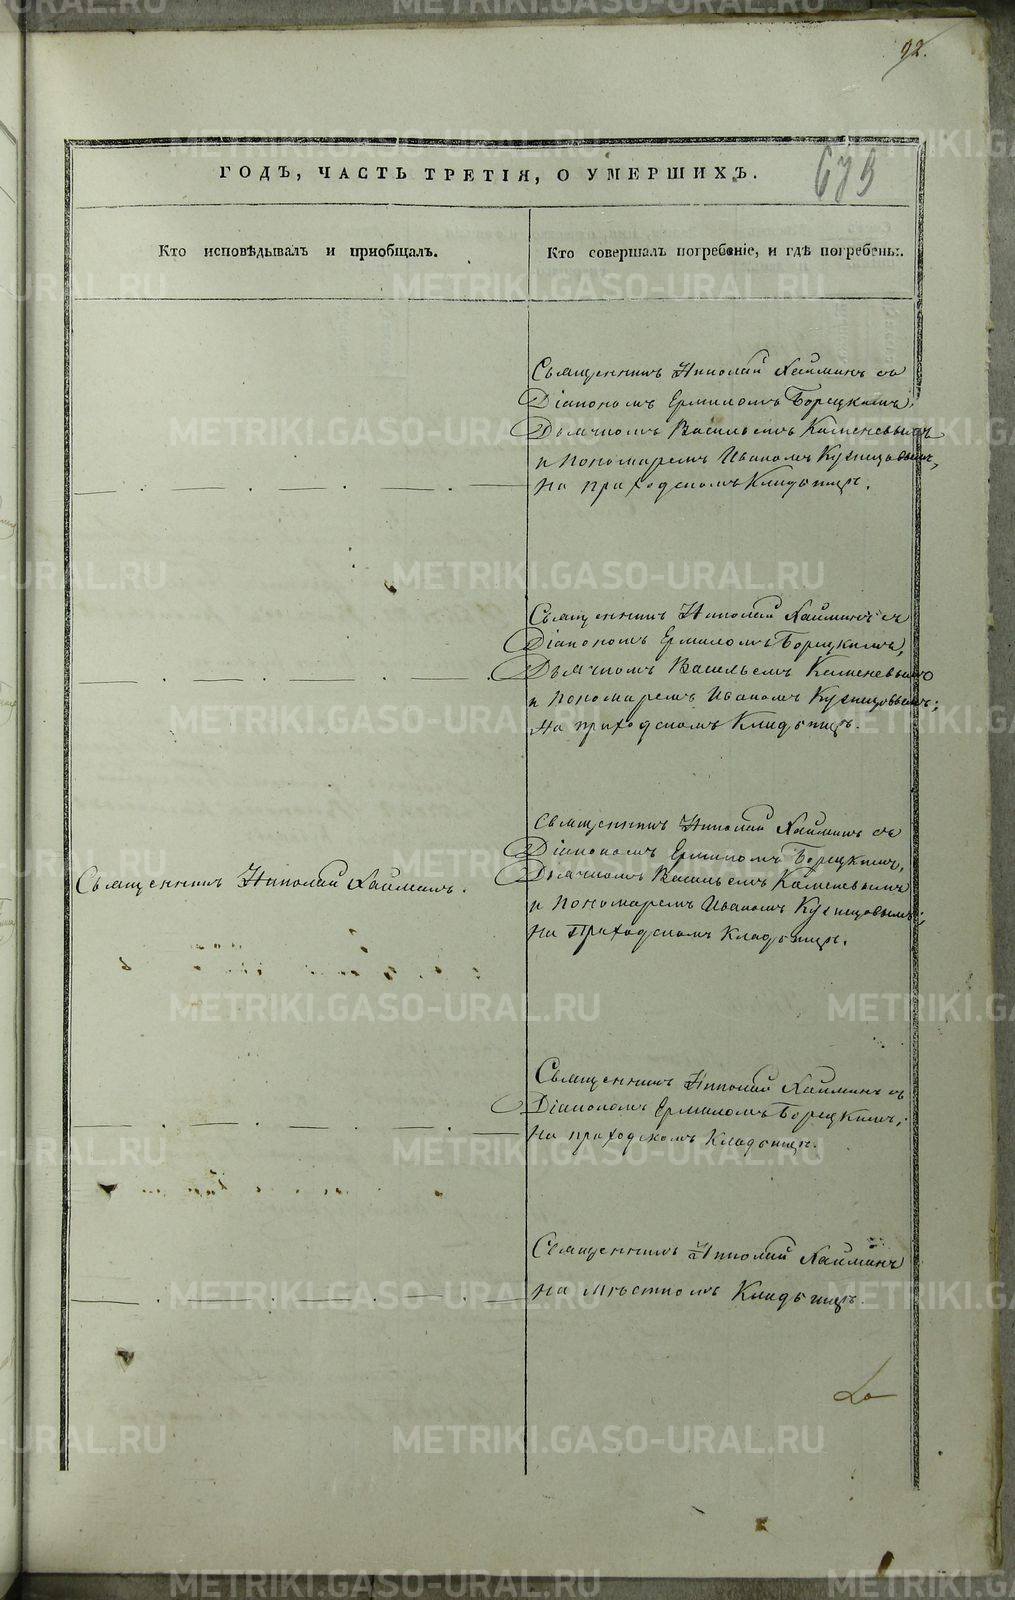 92.
ГОДЪ, ЧАСТЬ ТРЕТІЯ, О УМЕРШИХЪ.
679
Кто исповѣдывалъ и приобщалъ.
Кто совершалъ погребеніе, и гдѣ погребены.
Священникъ Николай Хайминъ съ
Діакономъ Ермиломъ Борецкимъ,
Дьячкомъ Васильемъ Каменевымъ
и Пономаремъ Иваномъ Кузнецовымъ,
На приходскомъ Кладбищѣ.
Священникъ Николай Хайминъ съ
Діакономъ Ермиломъ Борецкимъ,
Дьячкомъ Васильемъ Каменевымъ
и Пономаремъ Иваномъ Кузнецовымъ;
На приходскомъ Кладбищѣ.
Священникъ Николай Хайминъ.
Священникъ Николай Хайминъ съ
Діакономъ Ермиломъ Борецкимъ,
Дьячкомъ Васильемъ Каменевымъ
и Пономаремъ Иваномъ Кузнецовымъ;
На Приходскомъ Кладбищѣ.
Священникъ Николай Хайминъ съ
Діакономъ Ермиломъ Борецкимъ;
На приходскомъ Кладбищѣ.
Священникъ Николай Хайминъ
на мѣстномъ Кладбищѣ.
METRIKI.GASO-URAL.RU